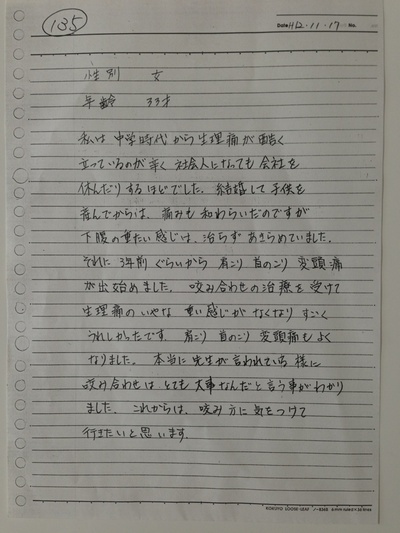 135
Date H12・11・17 No.
性別 女
年齢 33才
私は中学時代から生理痛が酷く
立っているのが辛く社会人になっても会社を
休んだりするほどでした。結婚して子供を
産んでからは、痛みも和わらいだのですが
下腹の重たい感じは、治らずあきらめていました。
それに3年前ぐらいから肩こり首のこり変頭痛
が出始めました。咬み合わせの治療を受けて
生理痛のいやな重い感じがなくなりすごく
うれしかったです。肩こり首のこり変頭痛もよく
なりました。本当に先生が言われている様に
咬み合わせは、とても大事なんだと言う事がわかり
ました。これからは、咬み方に気をつけて
行きたいと思います。
KOKUYO LOOSE-LEAF